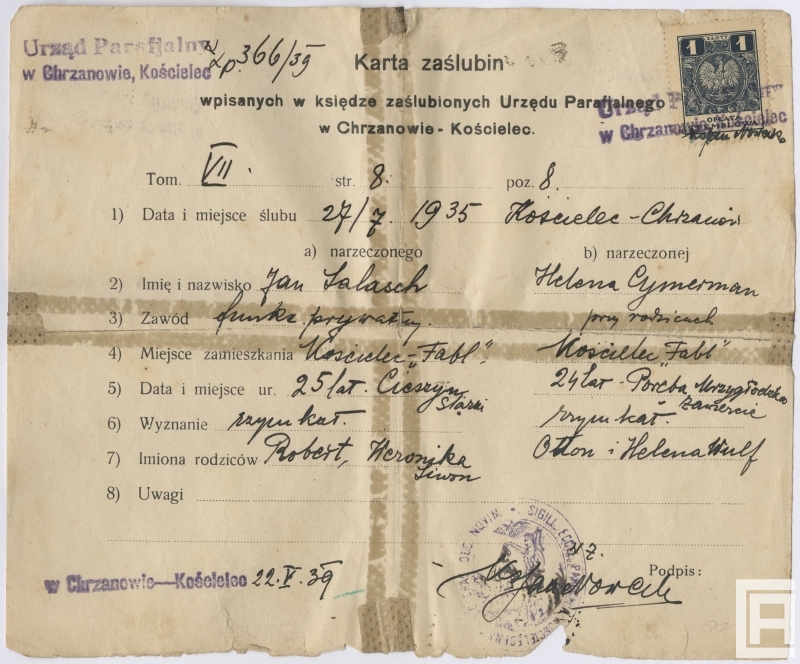 Urząd Parafjalny
w Chrzanowie, Kościelec
Lp. 366/39
Karta zaślubin
wpisanych w księdze zaślubionych Urzędu Parafjalnego
w Chrzanowie - Kościelec.
ZŁOTY
1 1
OPŁATA
STEMPLOWA
Urząd
w Chrzanowie, Kościelec
Tom. VII. str. 8. poz. 8.
1) Data i miejsce ślubu 27/7. 1935 Kościelec - Chrzanów
a) narzeczonego b) narzeczonej
2) Imię i nazwisko Jan Salasch Helena Cymerman
3) Zawód funkc. prywatny. przy rodzicach
4) Miejsce zamieszkania Kościelec - "Fabl". Kościelec "Fabl"
5) Data i miejsce ur. 25 lat. Cieszyn Śląski 24 lat - Poręba Mrzygłodzka Zawiercie
6) Wyznanie rzym kat. rzym kat.
7) Imiona rodziców Robert, Weronika Siwon Otton i Helena Wulf
8) Uwagi
w Chrzanowie—Kościelec 22.V.39
Podpis: